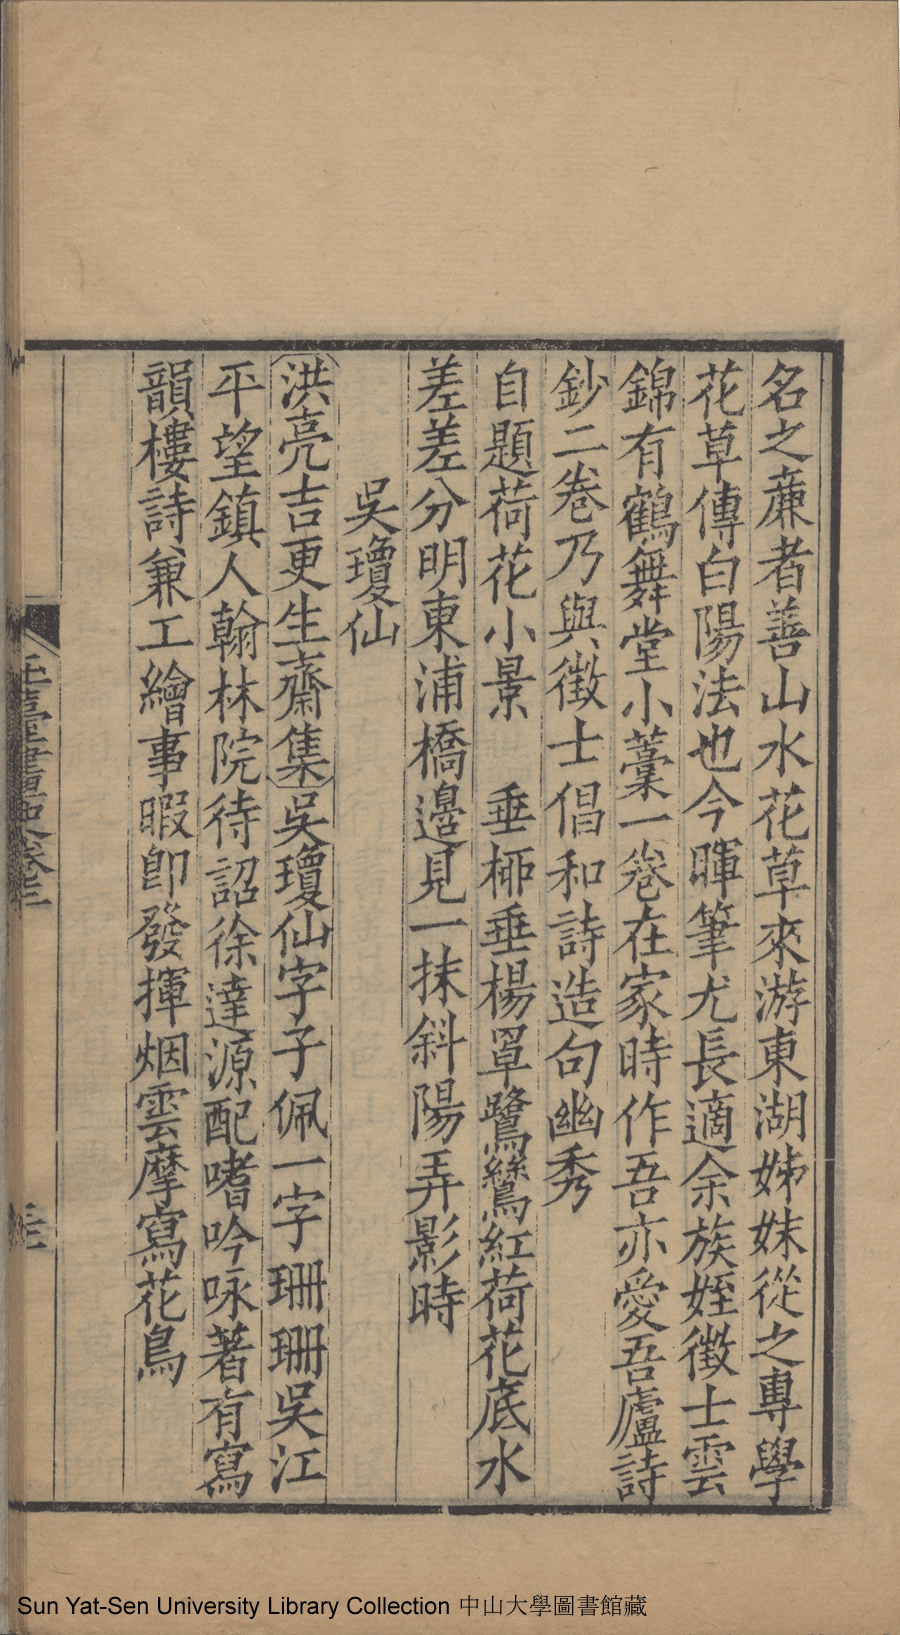 名之蔴者善山水花草來游東湖姊妹從之專學
花草傳白陽法也今暉筆尤長適余族姪徵士雲
錦有鶴舞堂小藁一卷在家時作吾亦愛吾廬詩
鈔二卷乃與徵士倡和詩造句幽秀
自題荷花小景　垂桺垂楊罩鷺鷥紅荷花底水
差差分明東浦橋邊見一抹斜陽弄影時
吳瓊仙
洪亮吉更生齋集吳瓊仙字子佩一字珊珊吳江
平望鎮人翰林院待詔徐達源配嗜吟咏著有寫
韻樓詩兼工繪事暇卽發揮烟雲摩寫花鳥
玉臺畫史卷三
Sun Yat-Sen University Library Collection 中山大學圖書館藏